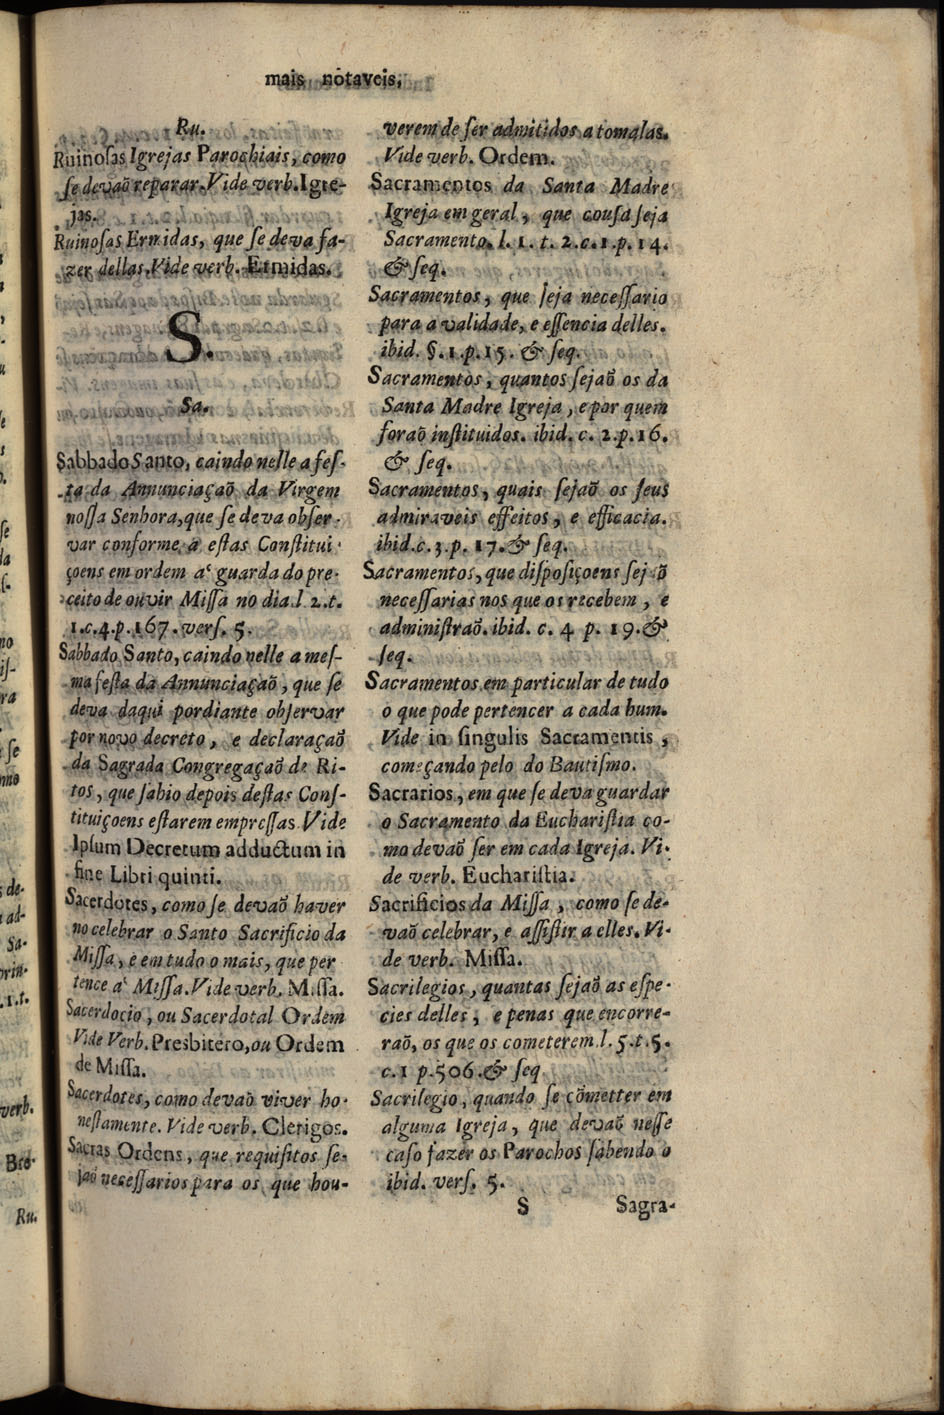 mais nòtaveis,
Ru.
Ruinoſas Igrejas Parochiais, como
ſe devaõ reparar. Vide verb. Igre-
jas.
Ruinoſas Ermidas, que ſe deva fa-
zer dellas. Vide verb. Ermidas.
S.
Sa.
Sabbado Santo, caindo nelle a feſ-
ta da Annunciaçaõ da Virgem
noſſa Senhora, que ſe deva obſer-
var conforme a eſtas Conſtitui-
çoens em ordem a' guarda do pre-
ceito de ouvir Miſſa no dia. l 2. t.
1. c. 4. p. 167. verſ. 5.
Sabbado Santo, caindo nelle a meſ-
ma feſta da Annunciaçaõ, que ſe
deva daqui pordiante obſervar
por novo decreto, e declaraçaõ
da Sagrada Congregaçaõ de Ri-
tos, que ſahio depois deſtas Conſ-
tituiçoens eſtarem empreſſas. Vide
Ipſum Decretum adductum in
fine Libri quinti.
Sacerdotes, como ſe devaõ haver
no celebrar o Santo Sacrificio da
Miſſa, e em tudo o mais, que per
tence a' Miſſa. Vide verb. Miſſa.
Sacerdocio, ou Sacerdotal Ordem
Vide Verb. Presbitero, ou Ordem
de Miſſa.
Sacerdotes, como devaõ viver ho-
neſtamente. Vide verb. Clerigos.
Sacras Ordens, que requiſitos ſe-
jaõ neceſſarios para os que hou-
verem de ſer admitidos a tomalas.
Vide verb. Ordem.
Sacramentos da Santa Madre
Igreja em geral, que couſa ſeja
Sacramento. l. 1. t. 2. c. 1. p. 14.
& ſeq.
Sacramentos, que ſeja neceſſario
para a validade, e eſſencia delles.
ibid. §. 1. p. 15. & ſeq.
Sacramentos, quantos ſejaõ os da
Santa Madre Igreja, e por quem
foraõ inſtituidos. ibid. c. 2. p. 16.
& ſeq.
Sacramentos, quais ſejaõ os ſeus
admiraveis effeitos, e efficacia.
ibid. c. 3. p. 17. & ſeq.
Sacramentos, que diſpoſiçoens ſejaõ
neceſſarias nos que os recebem, e
adminiſtraõ. ibid. c. 4 p. 19. &
ſeq.
Sacramentos em particular de tudo
o que pode pertencer a cada hum.
Vide in ſingulis Sacramentis,
começando pelo do Bautiſmo.
Sacrarios, em que ſe deva guardar
o Sacramento da Euchariſtia co-
mo devaõ ſer em cada Igreja. Vi-
de verb. Euchariſtia.
Sacrificios da Miſſa, como ſe de-
vaõ celebrar, e aſſiſtir a elles. Vi-
de verb. Miſſa.
Sacrilegios, quantas ſejaõ as eſpe-
cies delles, e penas que encorre-
raõ, os que os cometerem. l. 5. t. 5.
c. 1 p. 506. & ſeq
Sacrilegio, quando ſe cõmetter em
alguma Igreja, que devaõ neſſe
caſo fazer os Parochos ſabendo o
ibid. verſ. 5.
S Sagra-